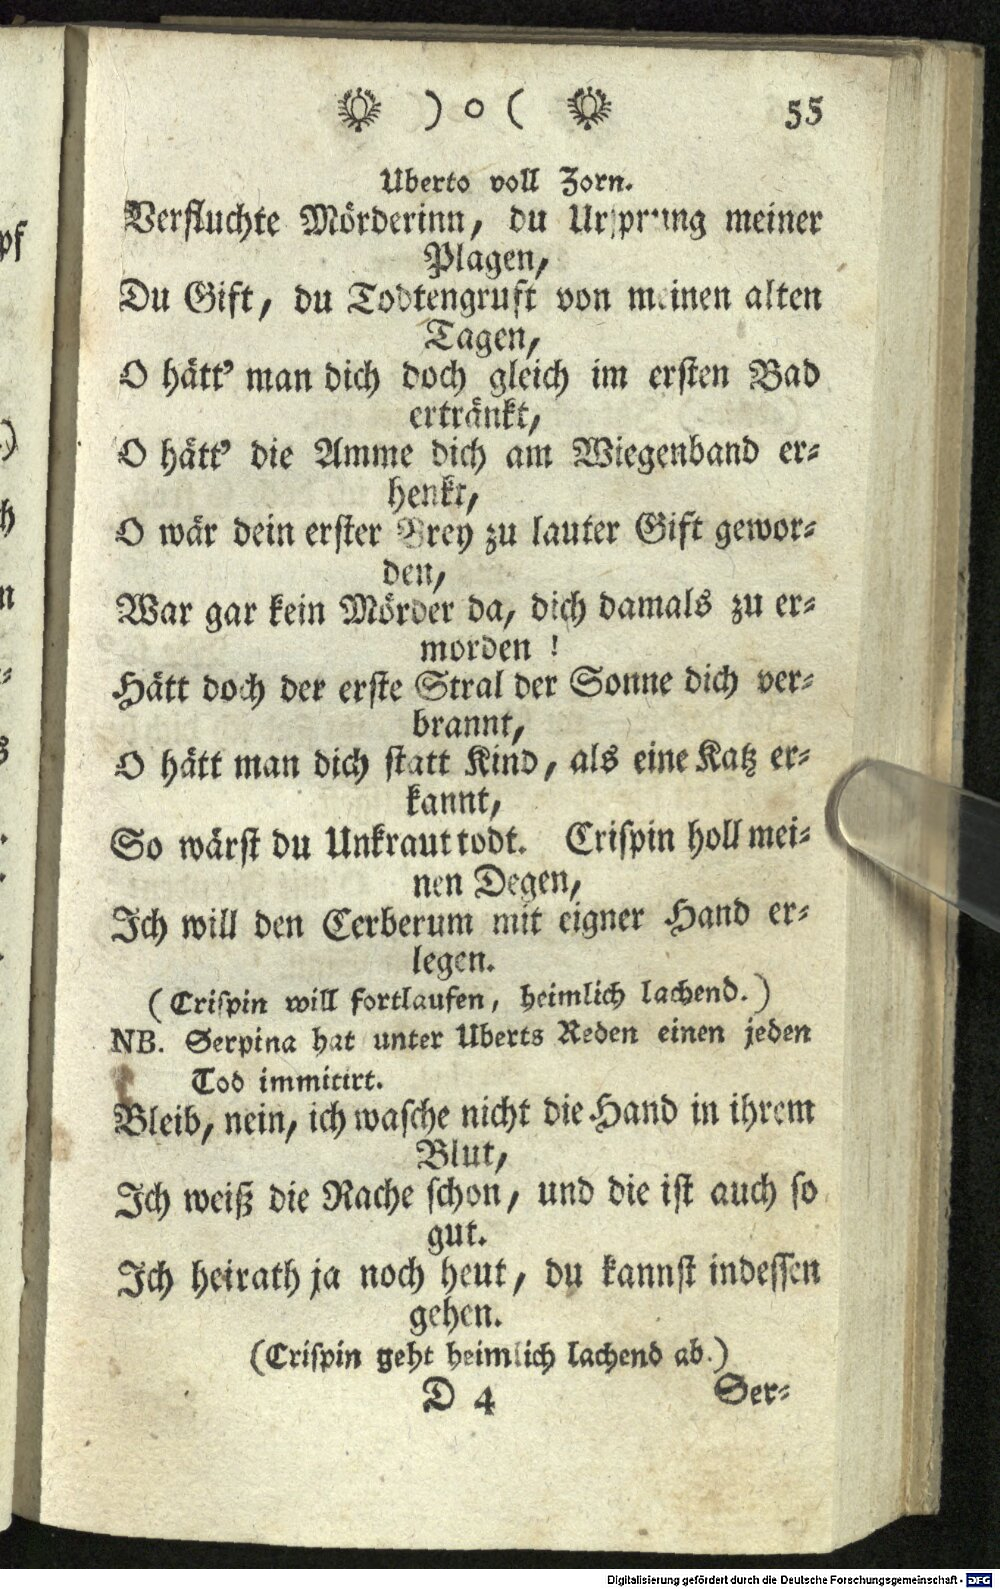 ) o ( 55
Uberto voll Zorn.
Verfluchte Mörderinn, du Ursprung meiner
Plagen,
Du Gift, du Todtengruft von meinen alten
Tagen,
O hätt' man dich doch gleich im ersten Bad
ertränkt,
O hätt' die Amme dich am Wiegenband er-
henkt,
O wär dein erster Brey zu lauter Gift gewor-
den,
War gar kein Mörder da, dich damals zu er-
morden !
Hätt doch der erste Stral der Sonne dich ver-
brannt,
O hätt man dich statt Kind, als eine Katz er-
kannt,
So wärst du Unkraut todt. Crispin holl mei-
nen Degen,
Ich will den Cerberum mit eigner Hand er-
legen.
(Crispin will fortlaufen, heimlich lachend.)
NB. Serpina hat unter Uberts Reden einen jeden
Tod immitirt.
Bleib, nein, ich wasche nicht die Hand in ihrem
Blut,
Ich weiß die Rache schon, und die ist auch so
gut.
Ich heirath ja noch heut, du kannst indessen
gehen.
(Crispin geht heimlich lachend ab.)
D 4 Ser-
Digitalisierung gefördert durch die Deutsche Forschungsgemeinschaft - DFG